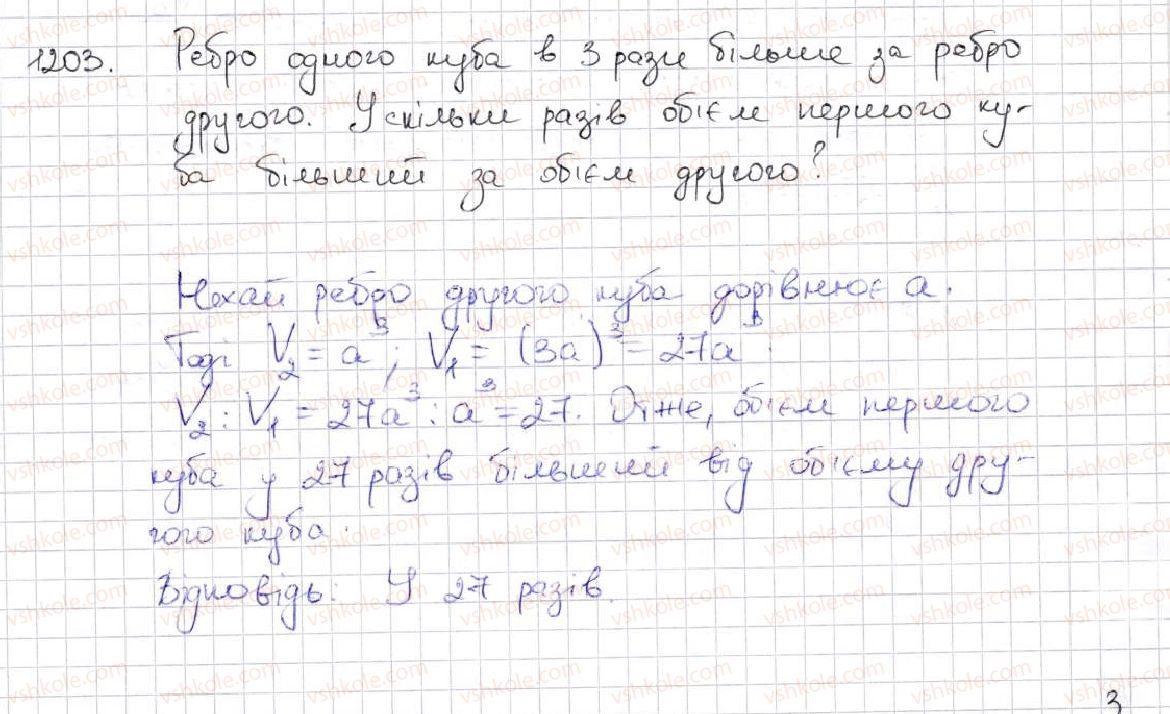 1203. Ребро одного куба в 3 рази більше за ребро
другого. У скільки разів обʼєм першого ку-
ба більший за обʼєм другого?
Нехай ребро другого куба дорівнює a.
Тоді V₂ = a³; V₁ = (3a)³ = 27a³.
V₂ : V₁ = 27a³ : a³ = 27. Отже, обʼєм першого
куба у 27 разів більший від обʼєму дру-
гого куба.
Відповідь: У 27 разів.
3